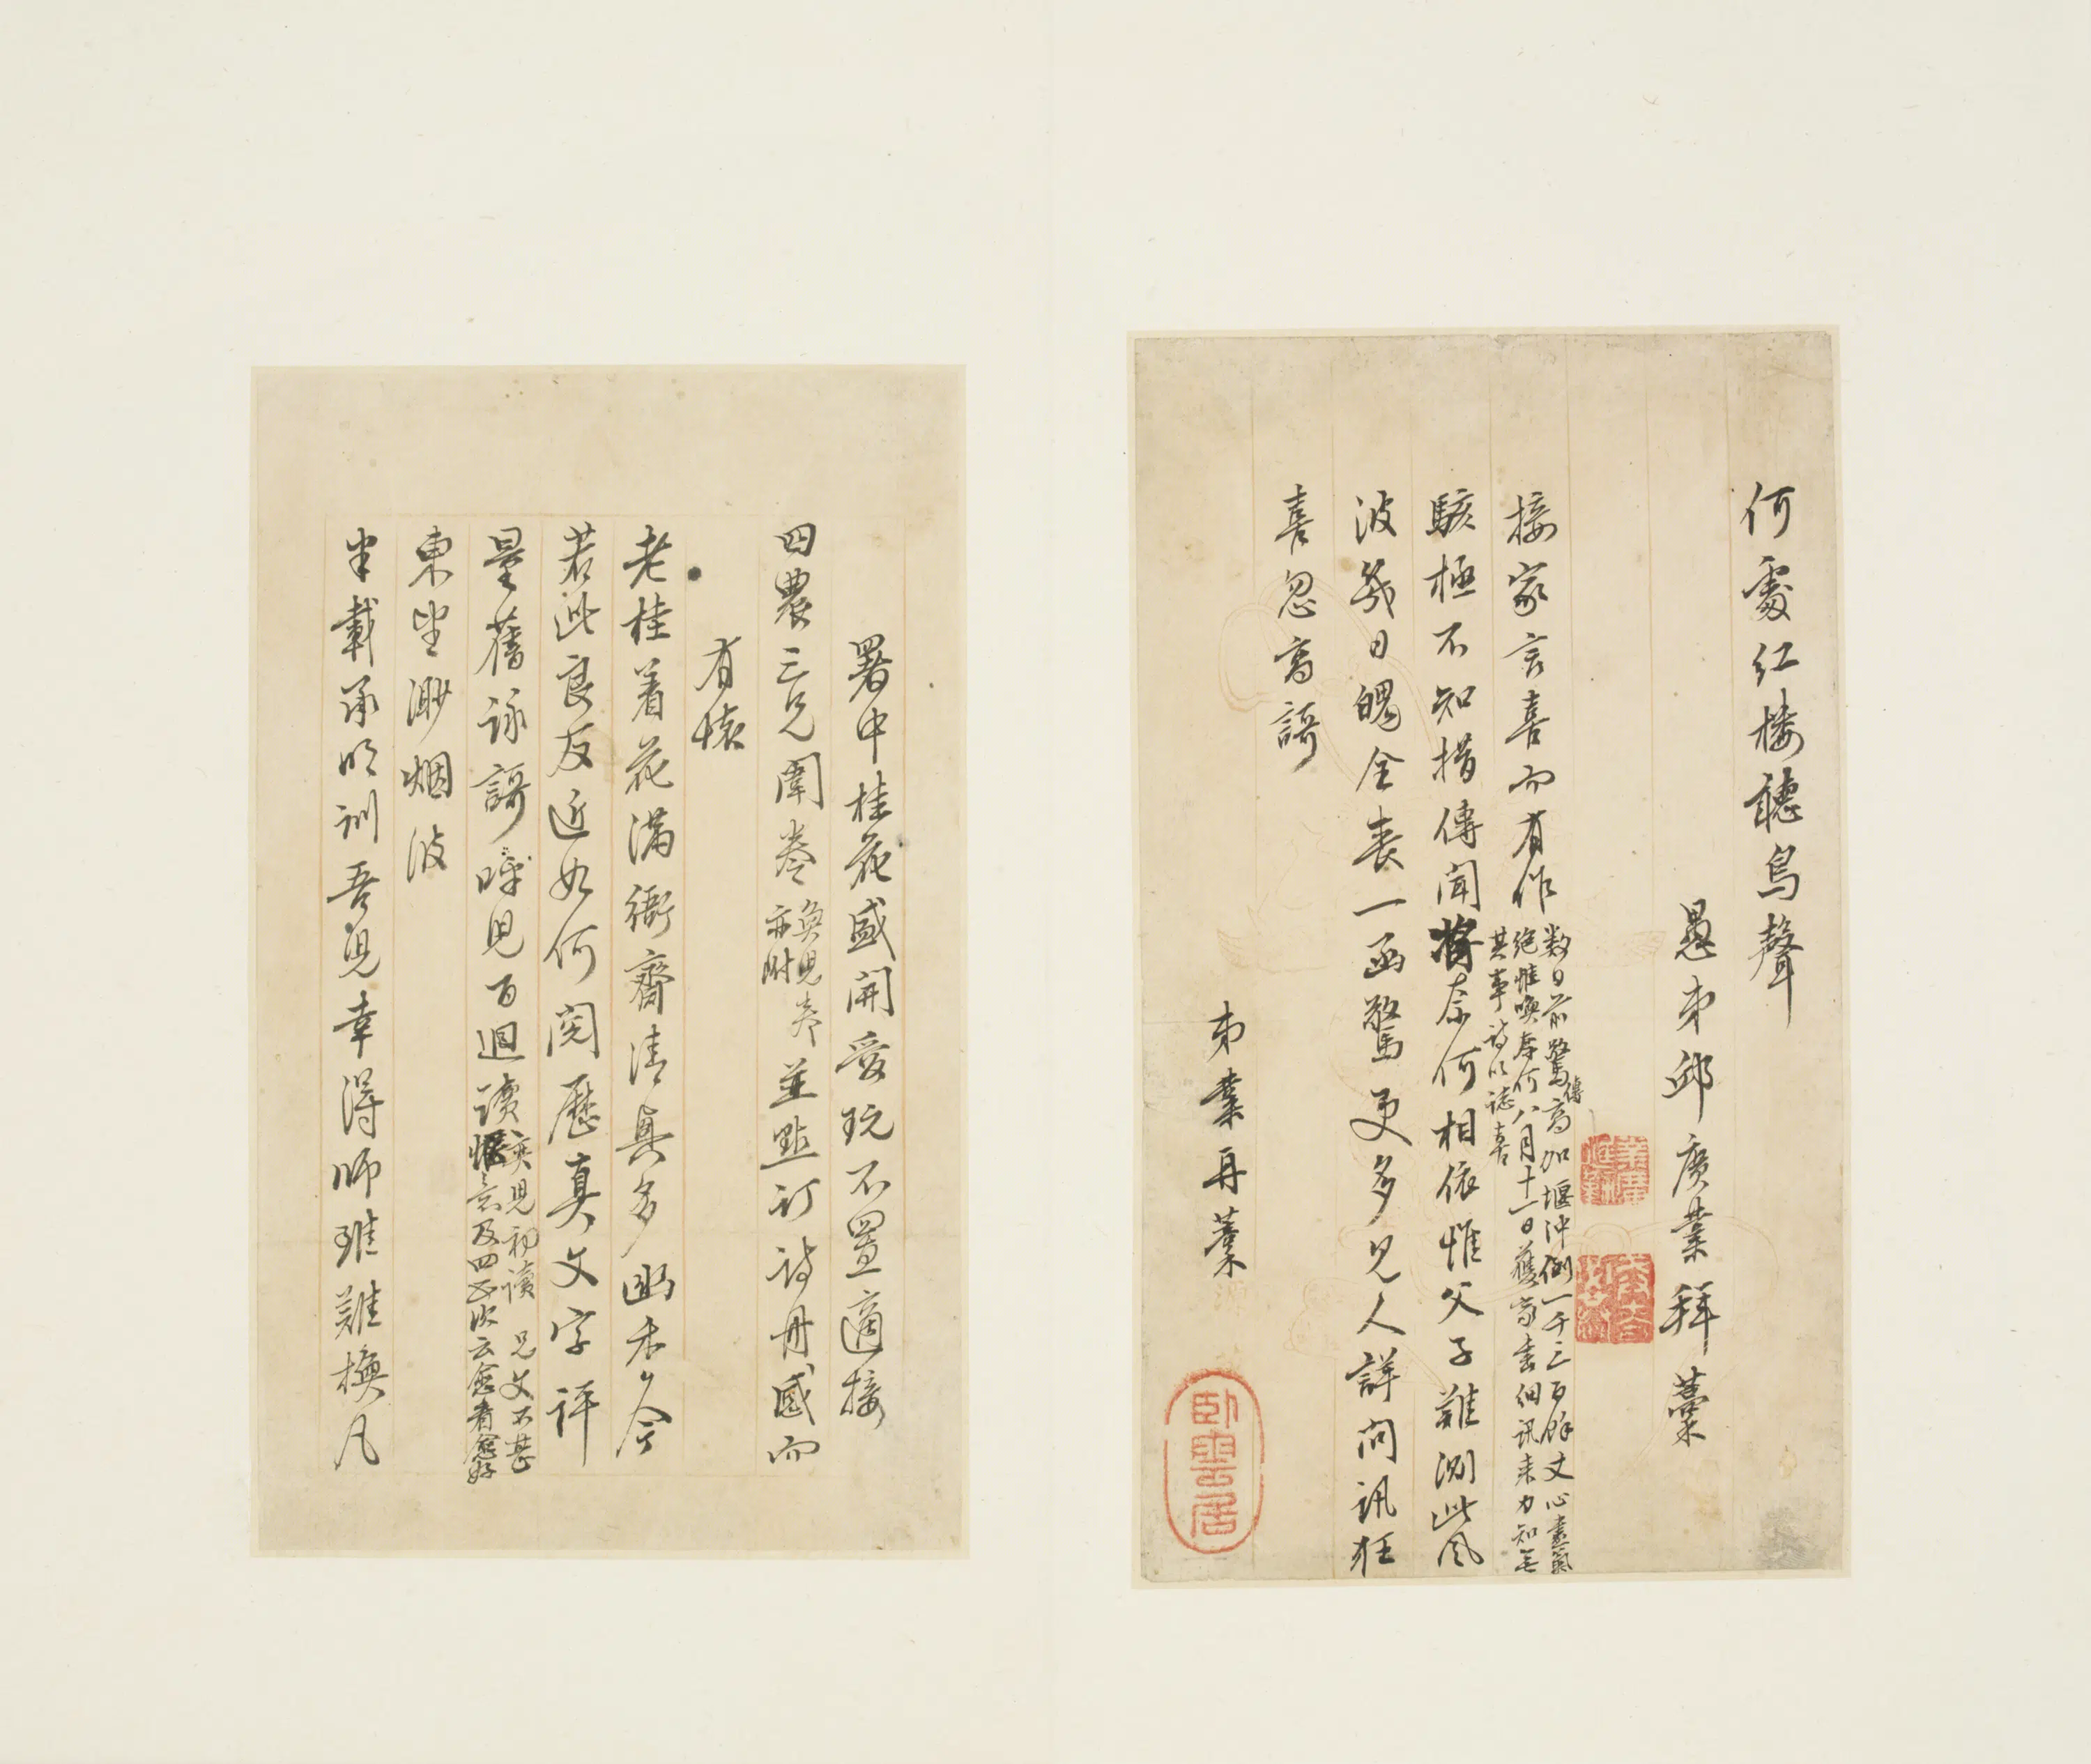 何處紅樓聽鳥聲
愚弟邱廣業拜藁
接家言喜而有作
數日前驚傳高加堰沖倒一千三百餘丈心盡氣
絕惟喚奈何八月十一日獲家書細訊來力知無
其事詩以誌喜
駭極不知措傳聞奈何相依惟父子難測此風
波幾日魄全喪一函驚更多見人詳問訊狂
喜忽高謌
弟業再藁
臥雲居
署中桂花盛開愛玩不置適接
四農三兄闈卷
奐兒卷
亦附
並點訂詩冊感而
有懷
老桂着花滿衙齋清興多幽禾今
若此良友近如何閱歷真文字評
量舊詠謌呼兒百迴讀
奕兒初讀兄文不甚
愜意及四五次云愈看愈好
東望渺烟波
半載承明訓吾兒幸得師雖難換凡